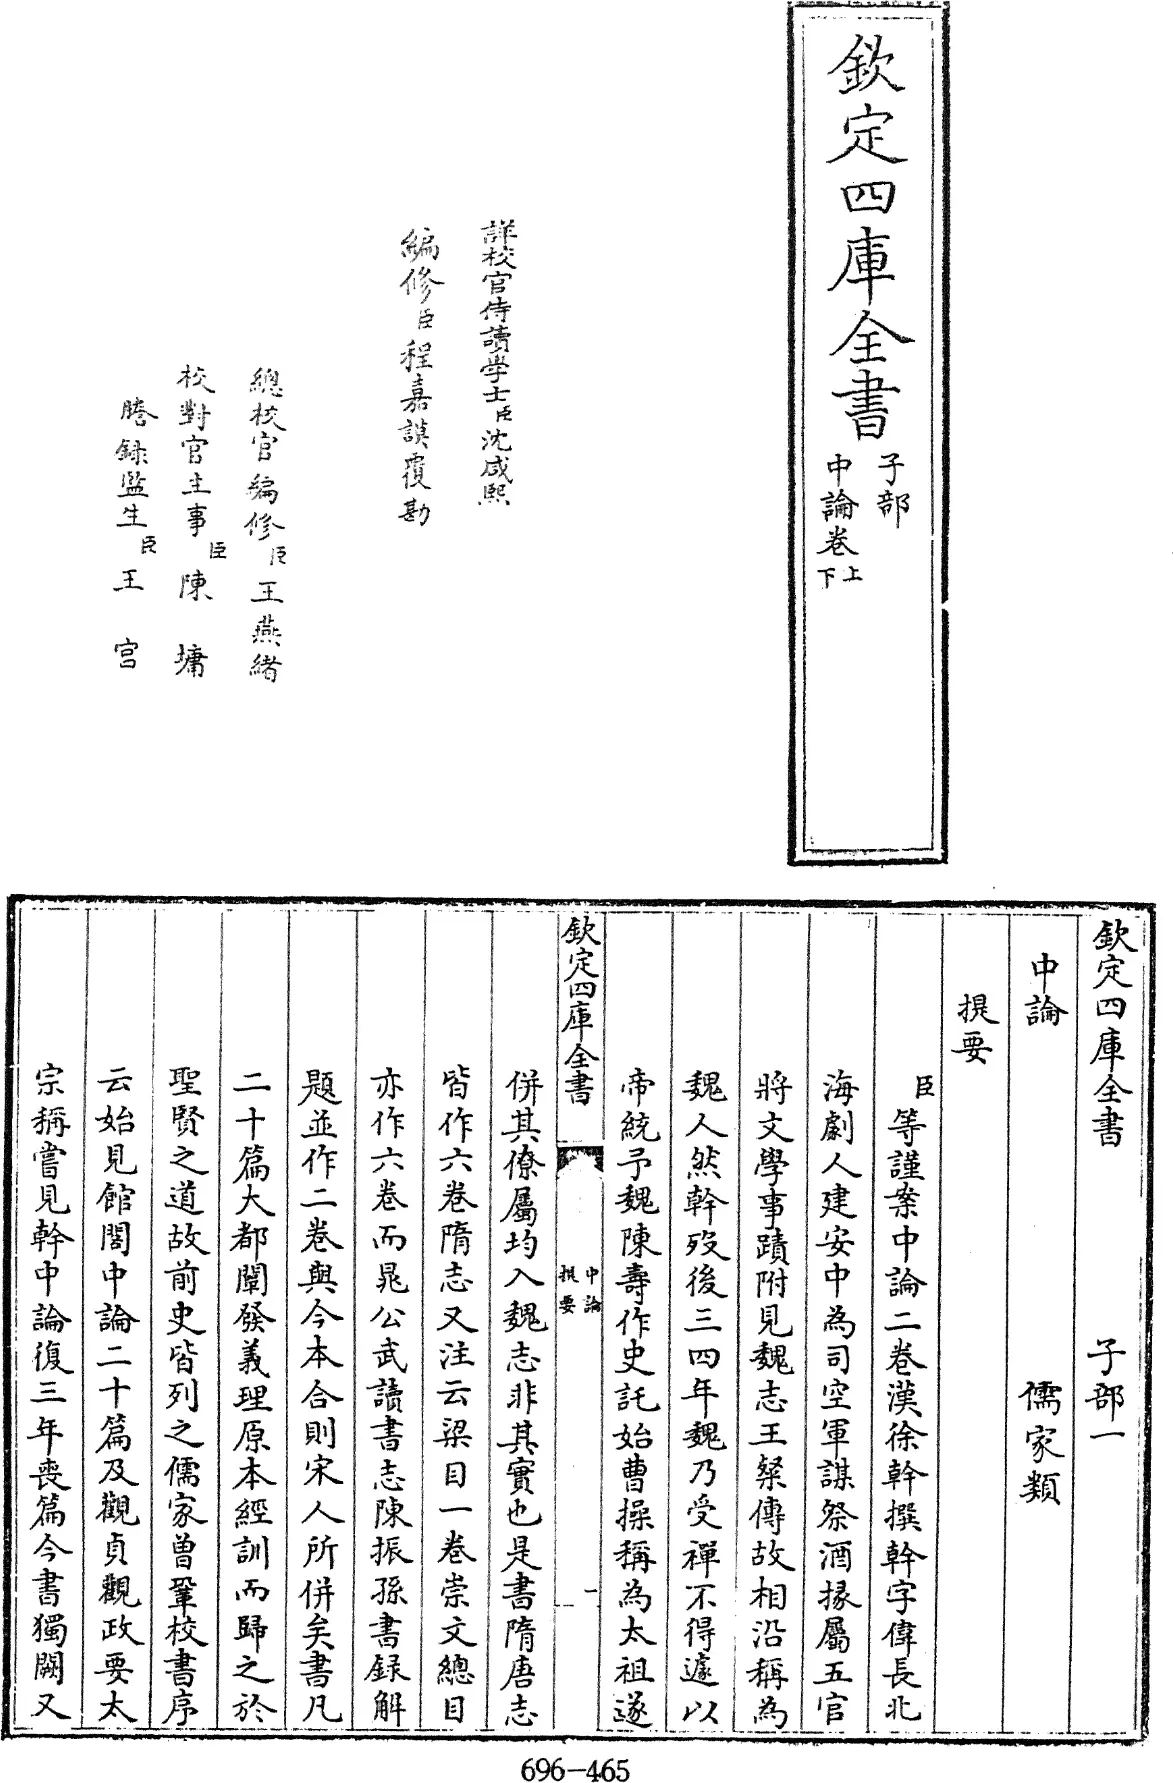 欽定四庫全書
子部
中論卷上下
詳校官侍讀學士臣沈咸熙
編修臣程嘉謨覆勘
總校官編修臣王燕緒
校對官主事臣陳墉
謄錄監生臣王宫
欽定四庫全書 子部一
中論 儒家類
提要
臣等謹案中論二卷漢徐幹撰幹字偉長北
海劇人建安中為司空軍謀祭酒掾屬五官
將文學事蹟附見魏志王粲傳故相沿稱為
魏人然幹歿後三四年魏乃受禪不得遽以
帝統予魏陳壽作史託始曹操稱為太祖遂
欽定四庫全書
中論
提要
一
併其僚屬均入魏志非其實也是書隋唐志
皆作六卷隋志又注云梁目一卷崇文總目
亦作六卷而晁公武讀書志陳振孫書録解
題並作二卷與今本合則宋人所併矣書凡
二十篇大都闡發義理原本經訓而歸之於
聖賢之道故前史皆列之儒家曾鞏校書序
云始見館閣中論二十篇及觀貞觀政要太
宗稱嘗見幹中論復三年喪篇今書獨闕又
696-465